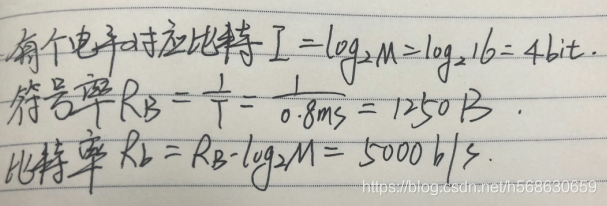 有个电平对应比特 I = log₂M = log₂16 = 4bit.
符号率 R_B = 1/T = 1/0.8ms = 1250 B.
比特率 R_b = R_B·log₂M = 5000 b/s.
https://blog.csdn.net/h568630659